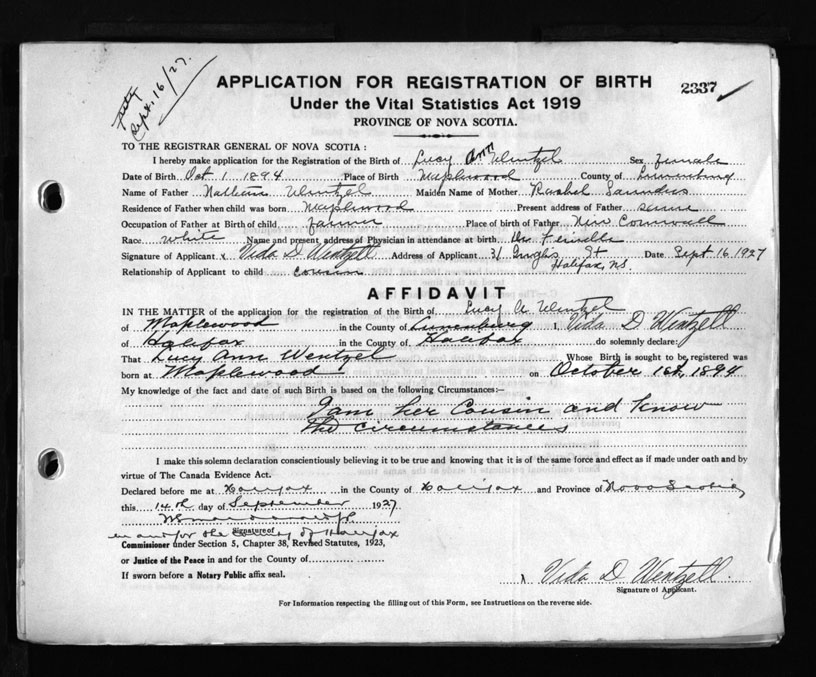 Sept. 16/27.
APPLICATION FOR REGISTRATION OF BIRTH
2337
Under the Vital Statistics Act 1919
PROVINCE OF NOVA SCOTIA.
TO THE REGISTRAR GENERAL OF NOVA SCOTIA :
I hereby make application for the Registration of the Birth of Lucy Ann Wentzel Sex female
Date of Birth Oct 1 1894 Place of Birth Maplewood County of Lunenburg
Name of Father Nathan Wentzel Maiden Name of Mother Rachel
Residence of Father when child was born Maplewood Present address of Father same
Occupation of Father at Birth of child farmer Place of birth of Father New Cornwall
Race White Name and present address of Physician in attendance at birth
Signature of Applicant x Vida D Wentzell Address of Applicant 31 St Halifax, N.S. Date Sept 16 1927
Relationship of Applicant to child cousin
AFFIDAVIT
IN THE MATTER of the application for the registration of the Birth of Lucy A Wentzel
of Maplewood in the County of Lunenburg I, Vida D Wentzell
of Halifax in the County of Halifax do solemnly declare:
That Lucy Ann Wentzel Whose Birth is sought to be registered was
born at Maplewood on October 1st, 1894
My knowledge of the fact and date of such Birth is based on the following Circumstances:—
I am her Cousin and know
the circumstances
I make this solemn declaration conscientiously believing it to be true and knowing that it is of the same force and effect as if made under oath and by
virtue of The Canada Evidence Act.
Declared before me at Halifax in the County of Halifax and Province of Nova Scotia,
this 14th day of September 1927
in and for the County of Halifax
Signature of
Commissioner under Section 5, Chapter 38, Revised Statutes, 1923,
or Justice of the Peace in and for the County of
If sworn before a Notary Public affix seal.
x Vida D Wentzell.
Signature of Applicant.
For Information respecting the filling out of this Form, see Instructions on the reverse side.